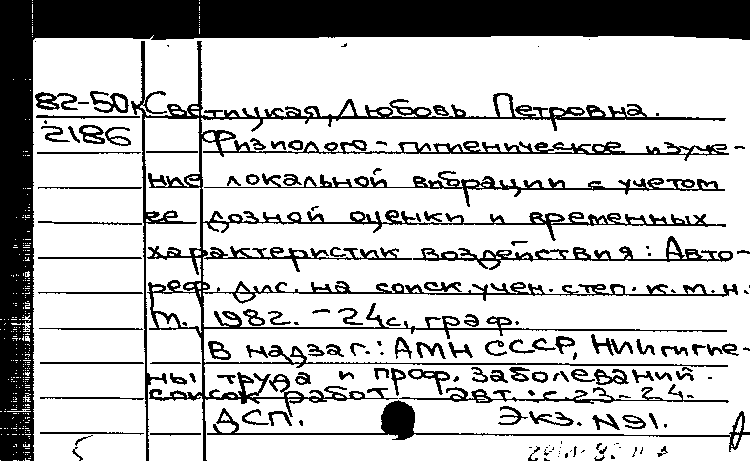 82-50к Светицкая, Любовь Петровна.
2186 Физиолого-гигиеническое изуче-
ние локальной вибрации с учетом
ее дозной оценки и временных
характеристик воздействия: Авто-
реф. дис. на соиск. учен. степ. к.м.н.
М., 1982. - 24с., граф.
В надзаг.: АМН СССР, НИИ гигие-
ны труда и проф. заболеваний.
Список работ авт.: с. 23-24.
ДСП. Экз. N91.